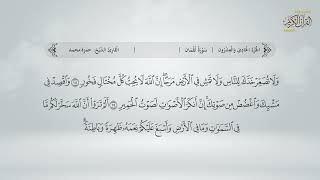 الجزء الحادي والعشرون | سورة لقمان | القارئ الشيخ: حمزة محمد
وَلَا تُصَعِّرْ خَدَّكَ لِلنَّاسِ وَلَا تَمْشِ فِي الْأَرْضِ مَرَحًا ۖ إِنَّ اللَّهَ لَا يُحِبُّ كُلَّ مُخْتَالٍ فَخُورٍ ۝١٨ وَاقْصِدْ فِي
مَشْيِكَ وَاغْضُضْ مِن صَوْتِكَ ۚ إِنَّ أَنكَرَ الْأَصْوَاتِ لَصَوْتُ الْحَمِيرِ ۝١٩ أَلَمْ تَرَوْا أَنَّ اللَّهَ سَخَّرَ لَكُم مَّا
فِي السَّمَاوَاتِ وَمَا فِي الْأَرْضِ وَأَسْبَغَ عَلَيْكُمْ نِعَمَهُ ظَاهِرَةً وَبَاطِنَةً ۗ